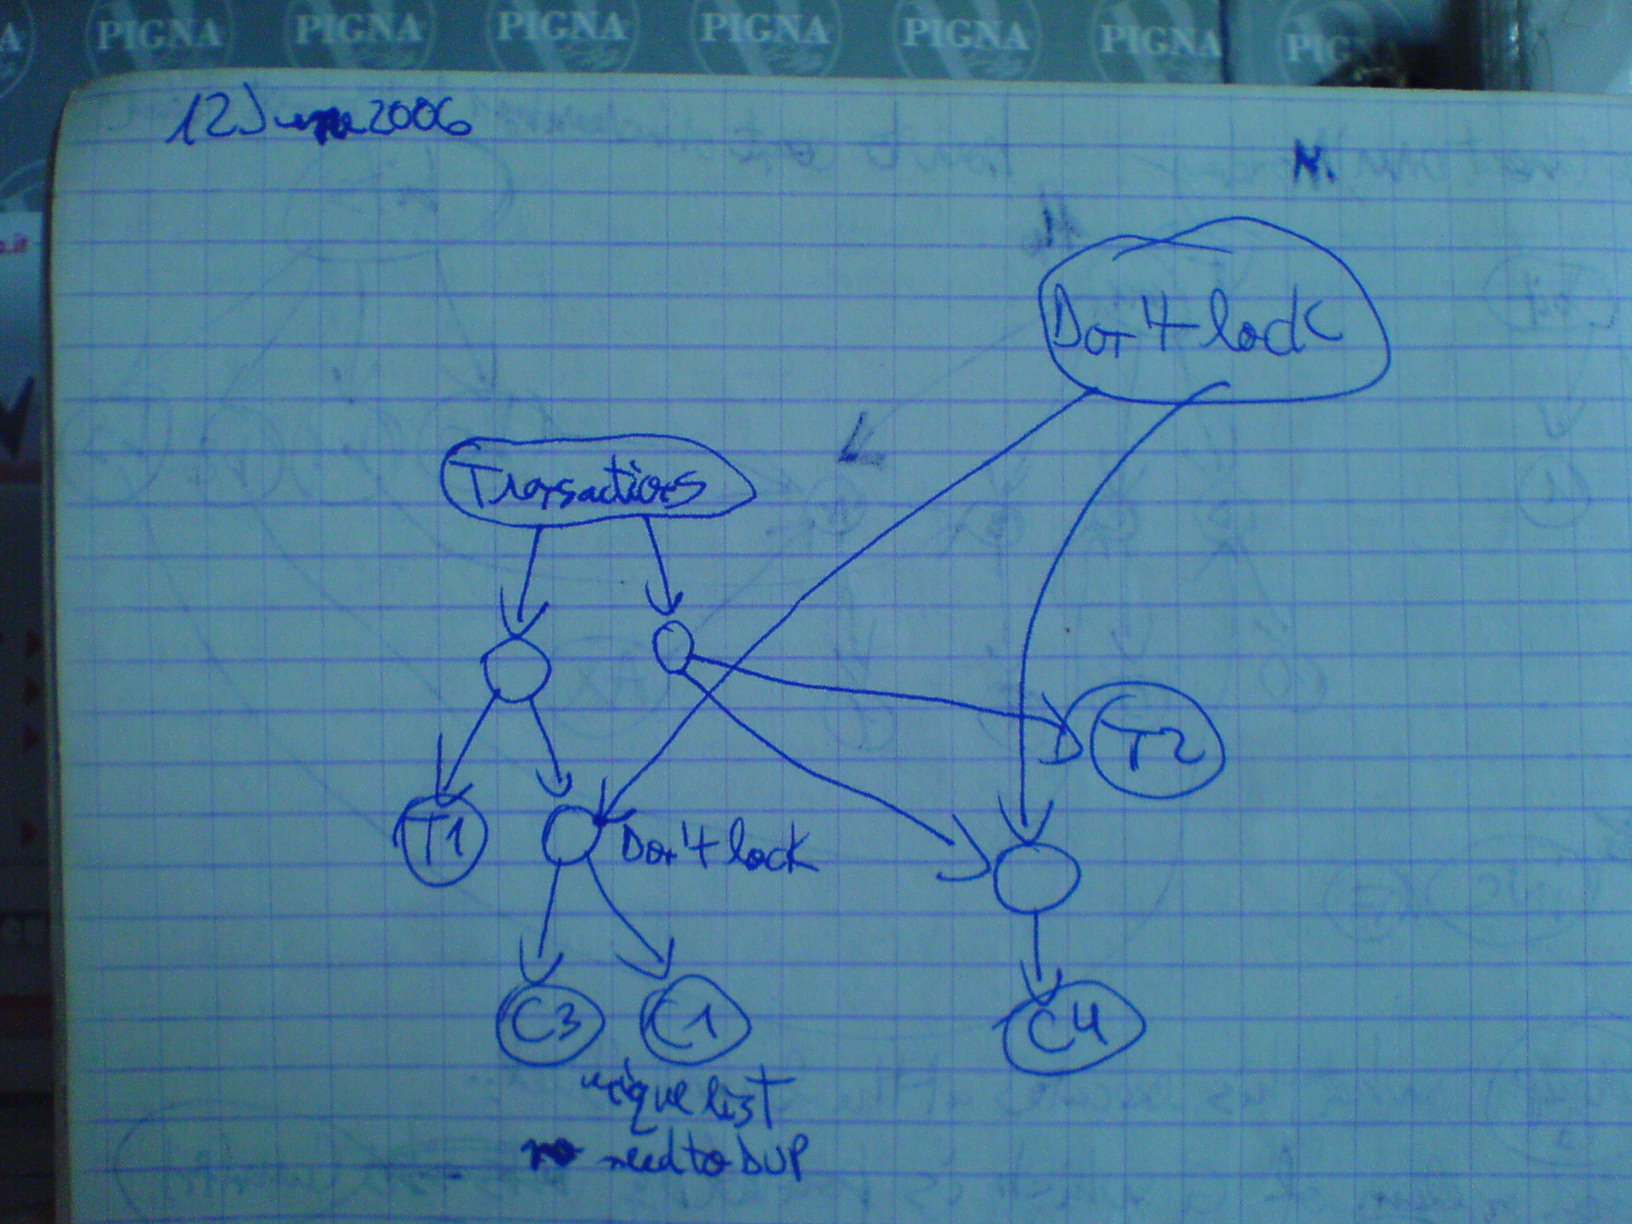 PIGNA PIGNA PIGNA PIGNA PIGNA PIGNA PIGNA
12 June 2006
N.
Don't lock
Transactions
T2
T1
Don't lock
C3 C1 C4
unique list
no need to DUP